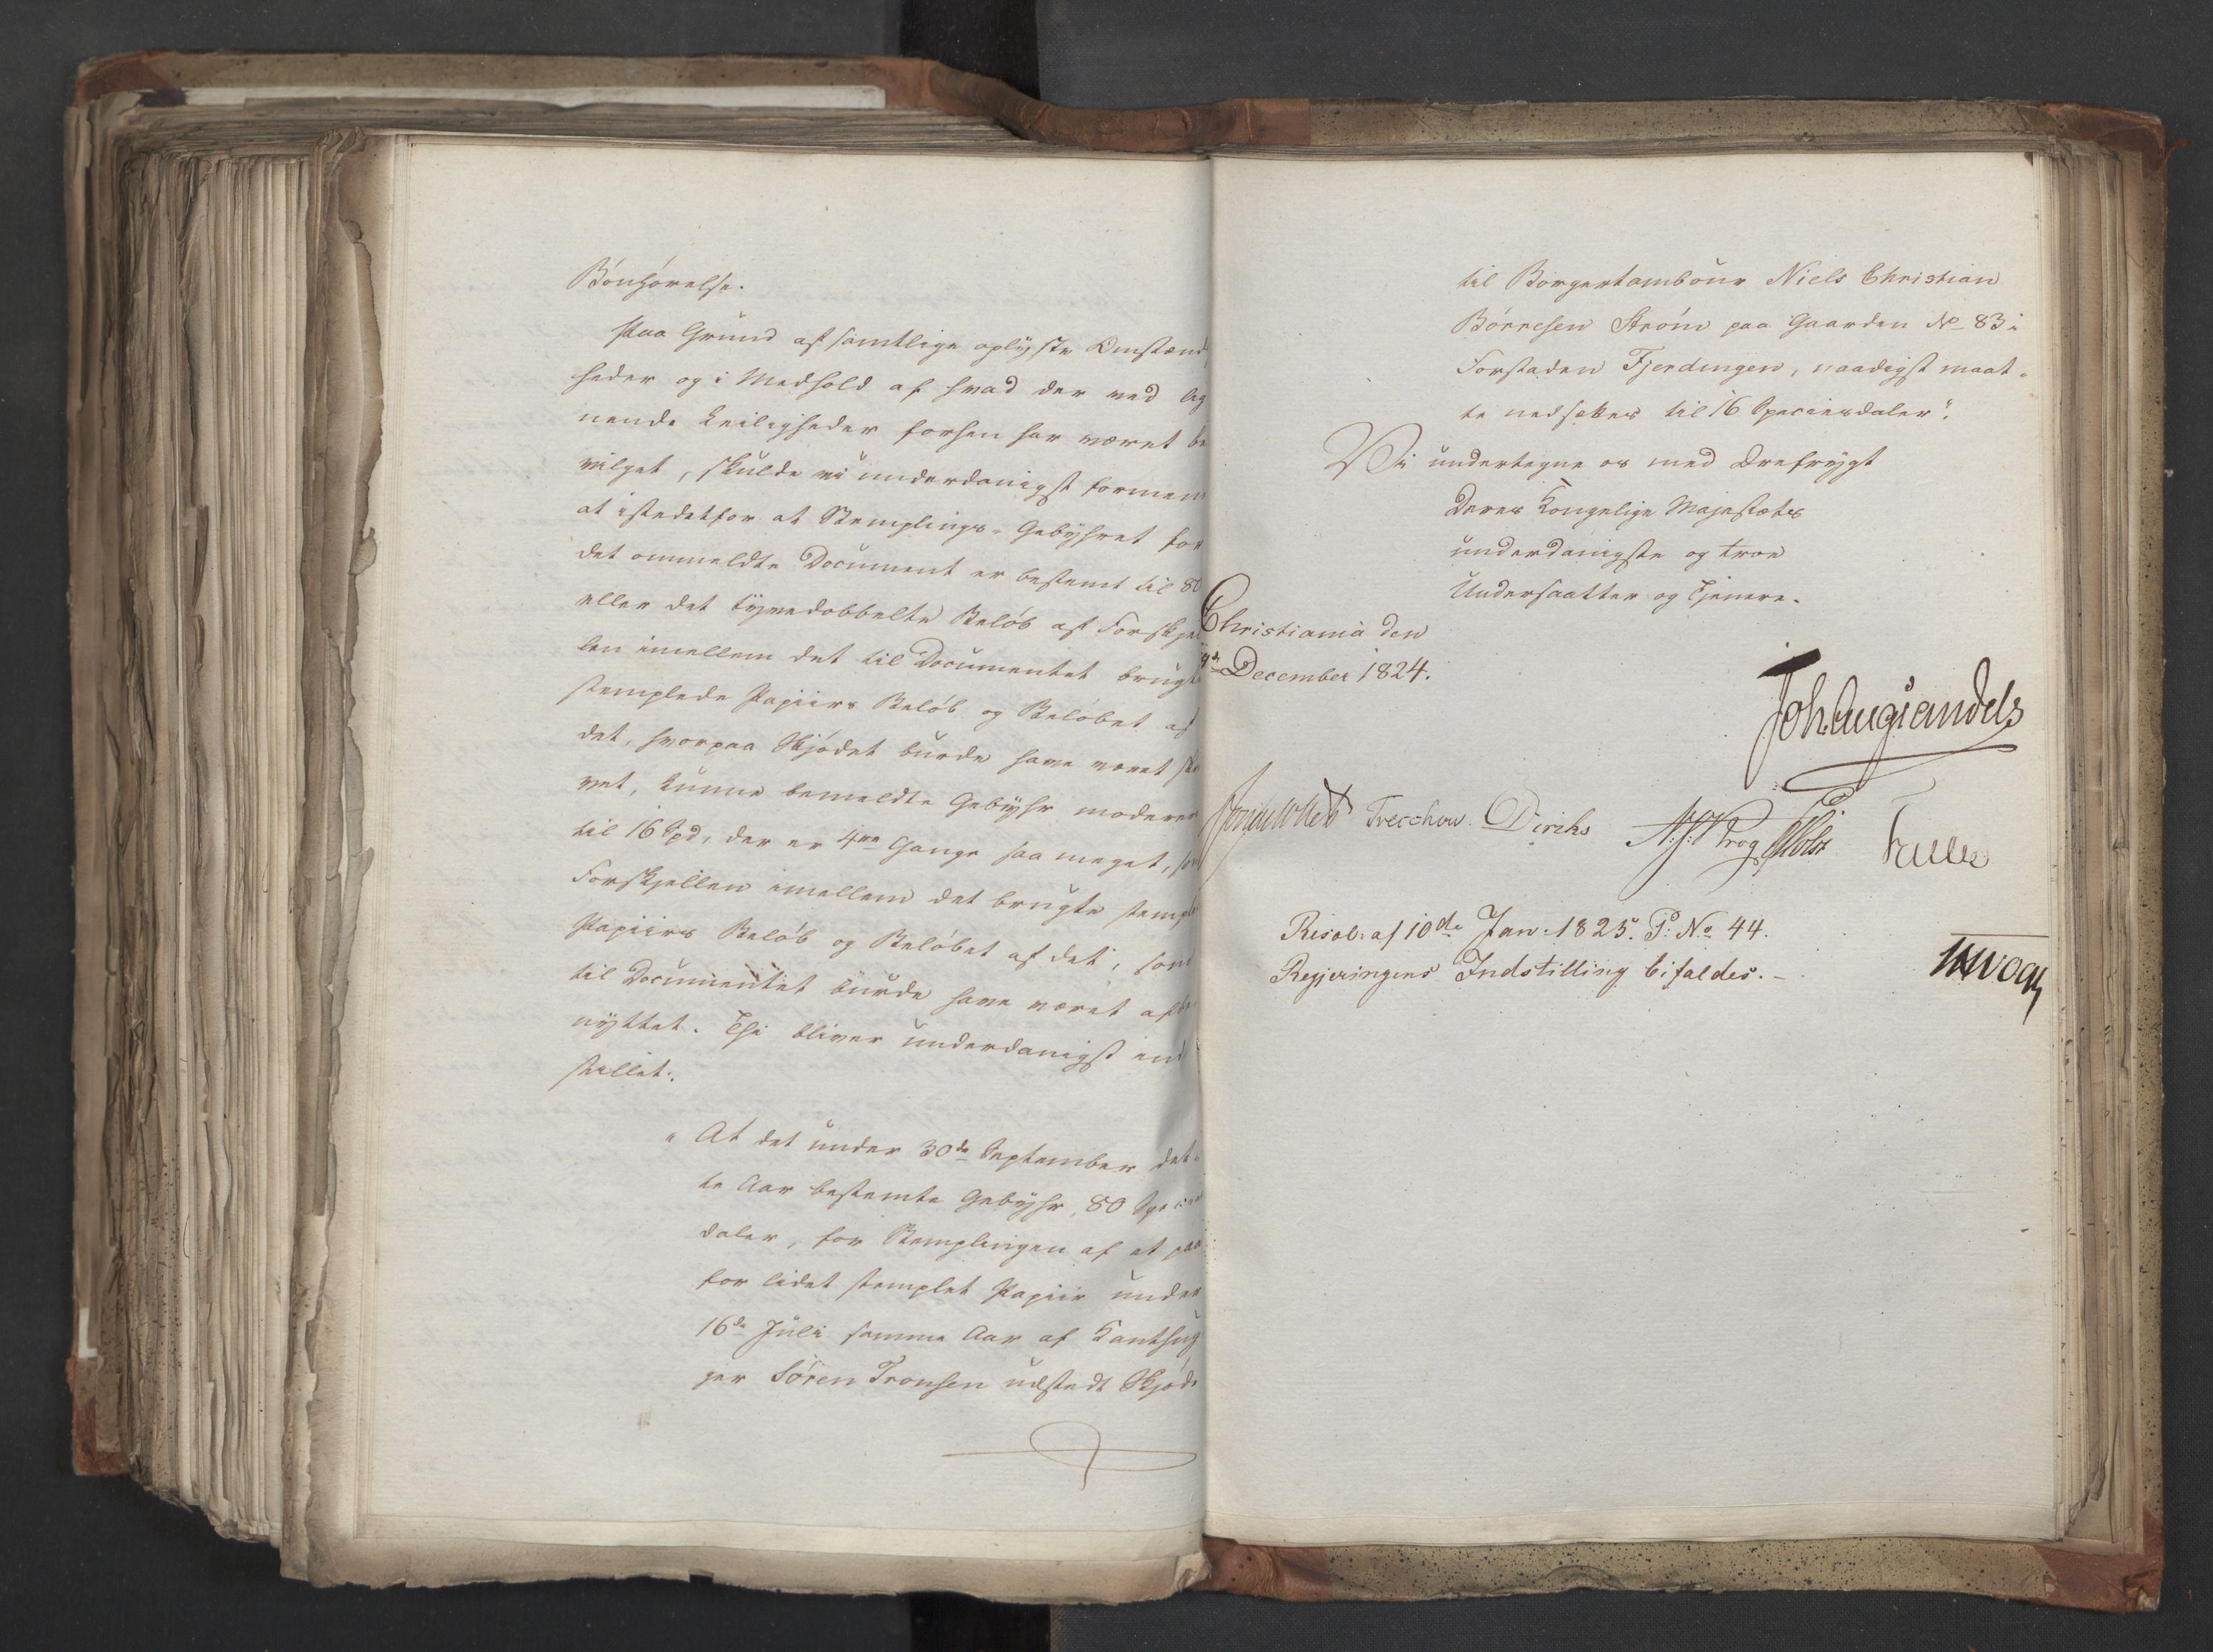 Bönhörelse.
Paa Grund af samtlige oplyste Omstænd
heder og i Medhold af hvad der ved lig
nende Leiligheder forhen har været be
vilget, skulde vi underdanigst formene
at istedetfor at Stemplings-Gebyhret for
det ommeldte Document er bestemt til 80
eller det tyvedobbelte Beløb af Forskjel
len imellem det til Documentet brugte
stemplede Papiirs Beløb og Beløbet af
det, hvorpaa Skjødet burde have været skre
vet, kunne bemeldte Gebyhr moderer
til 16 Spd, der er 4re Gange saa meget, som
Forskjellen imellem det brugte stempl
Papiirs Beløb og Beløbet af det, som
til Documentet burde have været afbe
nyttet. Thi bliver underdanigst ind
stillet:
"At det under 30de September det-
te Aar bestemte Gebyhr, 80 Species
daler, for Stemplingen af et paa
for lidet stemplet Papiir under
16de Juli samme Aar af Kanthug
ger Sören Tronsen udstedt Skjöde
til Borgertambour Niels Christian
Börresen Ström paa Gaarden No 83 i
Forstaden Fjerdingen, naadigst maat-
te nedsættes til 16 Speciesdaler".
Vi undertegne os med Ærefrygt
Deres Kongelige Majestæts
underdanigste og troe
Undersaatter og Tjenere.
Christiania den
December 1824.
Joh. Aug. Sandels
Treschow. Diriks N. J. Krog Holst
Resol: af 10de Jan: 1825. P: No 44.
Regjeringens Indstilling bifaldes.-